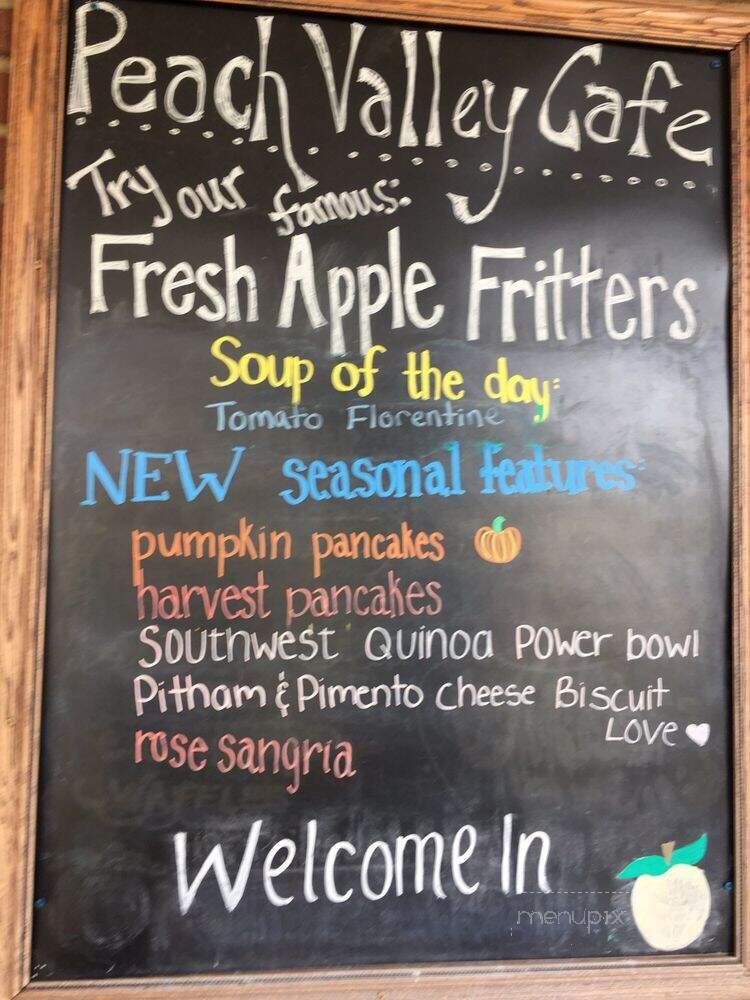 Peach Valley Cafe
Try our famous:
Fresh Apple Fritters
Soup of the day:
Tomato Florentine
NEW seasonal features:
pumpkin pancakes
harvest pancakes
Southwest Quinoa Power bowl
Pitham & Pimento cheese Biscuit
Love
rose sangria
Welcome In
menupix